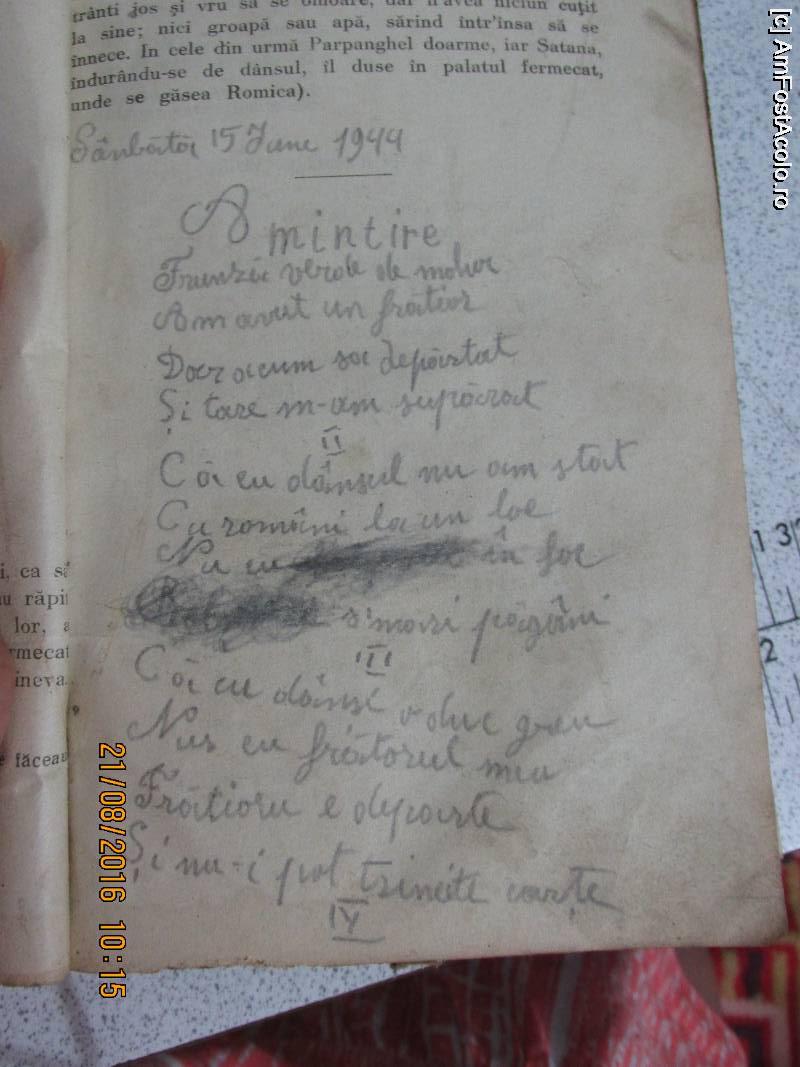 trânti jos și vru să se omoare, dar n'avea niciun cuțit
la sine; nici groapă sau apă, sărind într'însa să se
înnece. In cele din urmă Parpanghel doarme, iar Satana,
îndurându-se de dânsul, îl duse în palatul fermecat,
unde se găsea Romica).
Sânbătă 15 Iune 1944
Amintire
Frunză verde de mohor
Am avut un frățior
Dar acum sa depărtat
Și tare m-am supărat
II
Că cu dânsul nu am stat
Ca români la un loc
Nu cu în foc
s'mari păgâni
III
Că cu dânsi o duc greu
Nus cu frățorul meu
Frățioru e departe
Și nu-i pot trimite carte
IV
i, ca să
au răpi
lor, a
rmecat
ineva.
e făceau
13
2
21/08/2016 10:15
[c] AmFostAcolo.ro